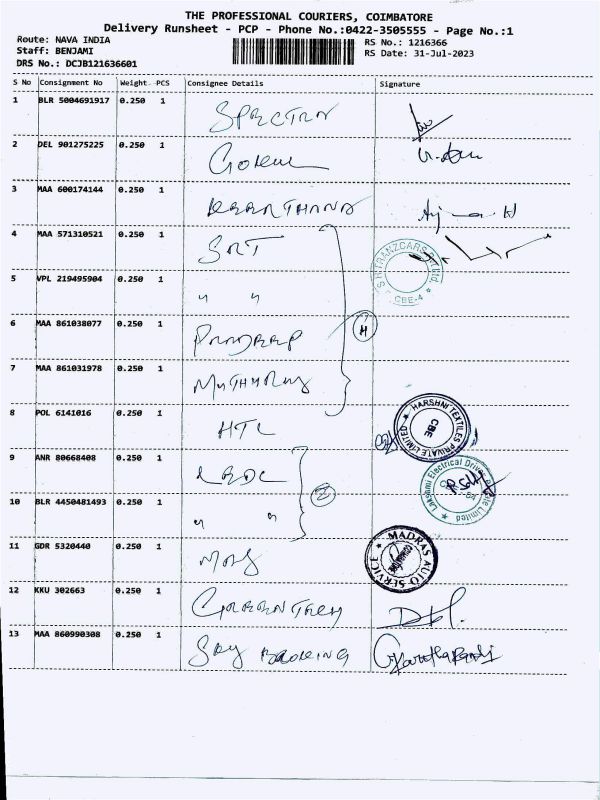 THE PROFESSIONAL COURIERS, COIMBATORE
Delivery Runsheet - PCP - Phone No.:0422-3505555 - Page No.:1
Route: NAVA INDIA RS No.: 1216366
Staff: BENJAMI RS Date: 31-Jul-2023
DRS No.: DCJB121636601
S No Consignment No Weight PCS Consignee Details Signature
1 BLR 5004691917 0.250 1 SPECTRA
2 DEL 901275225 0.250 1 GOKUL
3 MAA 600174144 0.250 1 KEERTHANA
4 MAA 571310521 0.250 1 SRT
CBE-4
5 VPL 219495904 0.250 1 " "
6 MAA 861038077 0.250 1 PRADEEP
4
7 MAA 861031978 0.250 1
8 POL 6141016 0.250 1 HTL
HARSHNI TEXTILES PRIVATE LIMITED
CBE
9 ANR 80668408 0.250 1
Lakshmi Electrical Drives Private Limited
2
10 BLR 4450481493 0.250 1 " "
11 GDR 5320440 0.250 1 MAS
MADRAS AUTO SERVICE
12 KKU 302663 0.250 1 GREENTECH
13 MAA 860990308 0.250 1 SKY BOOKING